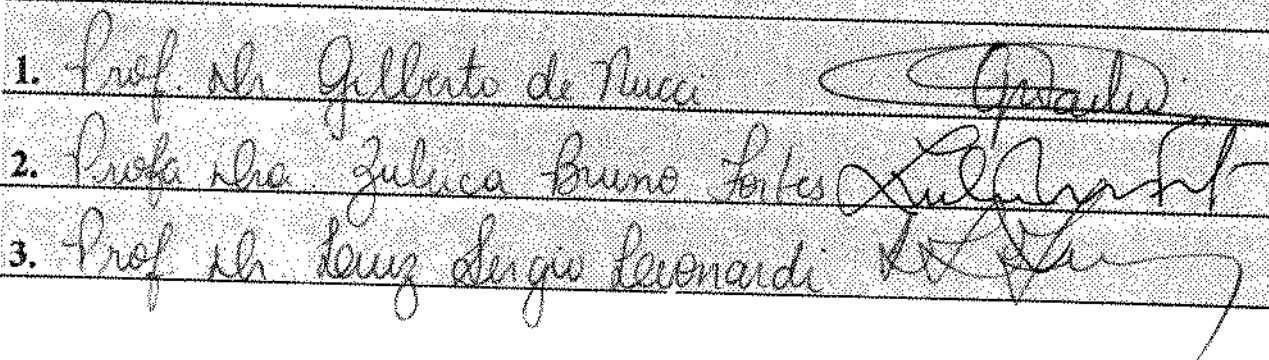 1. Prof. Dr Gilberto de Nucci
2. Profa Dra. Zuleica Bruno Fortes
3. Prof. Dr. Luiz Sergio Leonardi